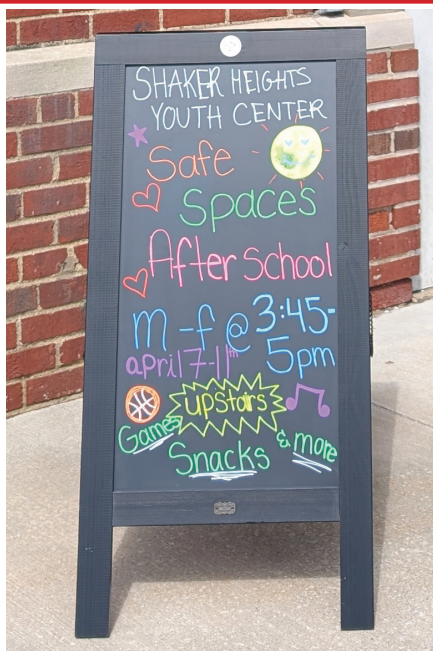 SHAKER HEIGHTS
YOUTH CENTER
Safe
Spaces
After School
M-f @ 3:45-
5pm
april 7-11th
upstairs
Games
Snacks
& more